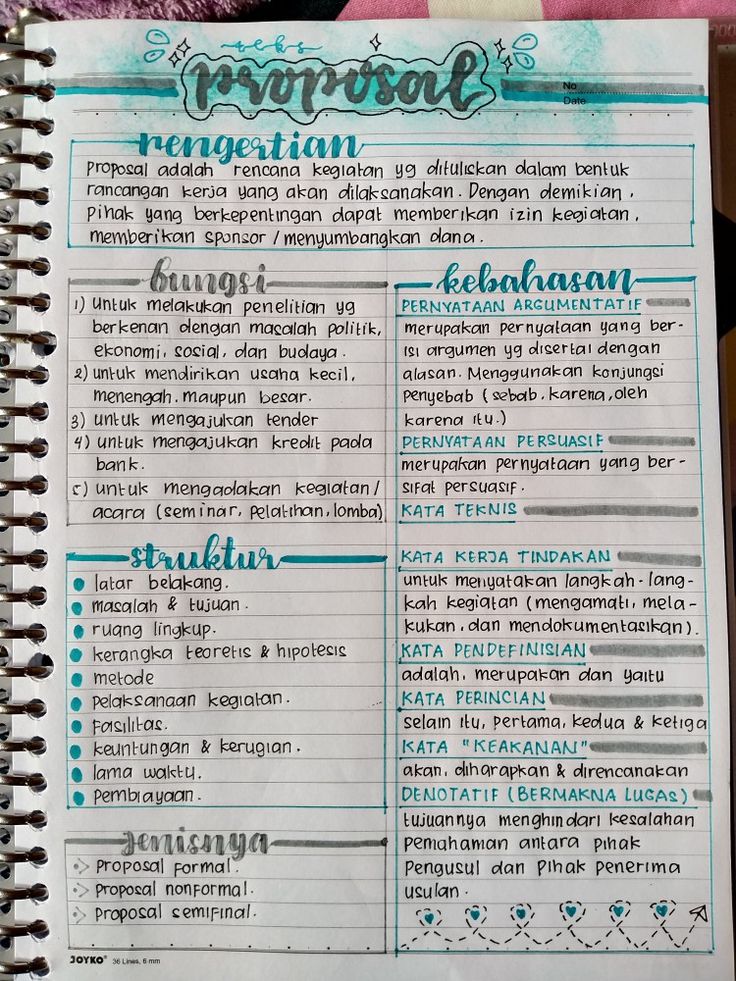 teks
proposal
No
Date
Pengertian
Proposal adalah rencana kegiatan yg dituliskan dalam bentuk
rancangan kerja yang akan dilaksanakan. Dengan demikian,
pihak yang berkepentingan dapat memberikan izin kegiatan,
memberikan sponsor / menyumbangkan dana.
bungsi
1) untuk melakukan penelitian yg
berkenan dengan masalah politik,
ekonomi, sosial, dan budaya.
2) untuk mendirikan usaha kecil,
menengah. maupun besar.
3) untuk mengajukan tender
4) untuk mengajukan kredit pada
bank.
5) untuk mengadakan kegiatan/
acara (seminar, pelatihan, lomba)
struktur
latar belakang.
masalah & tujuan.
ruang lingkup.
kerangka teoretis & hipotesis
metode
pelaksanaan kegiatan.
Fasilitas.
keuntungan & kerugian.
lama waktu.
pembiayaan.
Jenisnya
proposal formal.
proposal nonformal.
proposal semifinal.
kebahasan
PERNYATAAN ARGUMENTATIF
merupakan pernyataan yang ber-
isi argumen yg disertai dengan
alasan. Menggunakan konjungsi
penyebab (sebab, karena, oleh
karena itu.)
PERNYATAAN PERSUASIF
merupakan pernyataan yang ber-
sifat persuasif.
KATA TEKNIS
KATA KERJA TINDAKAN
untuk menyatakan langkah-lang-
kah kegiatan (mengamati, mela-
kukan, dan mendokumentasikan).
KATA PENDEFINISIAN
adalah, merupakan dan yaitu
KATA PERINCIAN
selain itu, pertama, kedua & ketiga
KATA "KEAKANAN"
akan, diharapkan & direncanakan
DENOTATIF (BERMAKNA LUGAS)
tujuannya menghindari kesalahan
pemahaman antara pihak
pengusul dan pihak penerima
usulan.
JOYKO 36 Lines, 6 mm